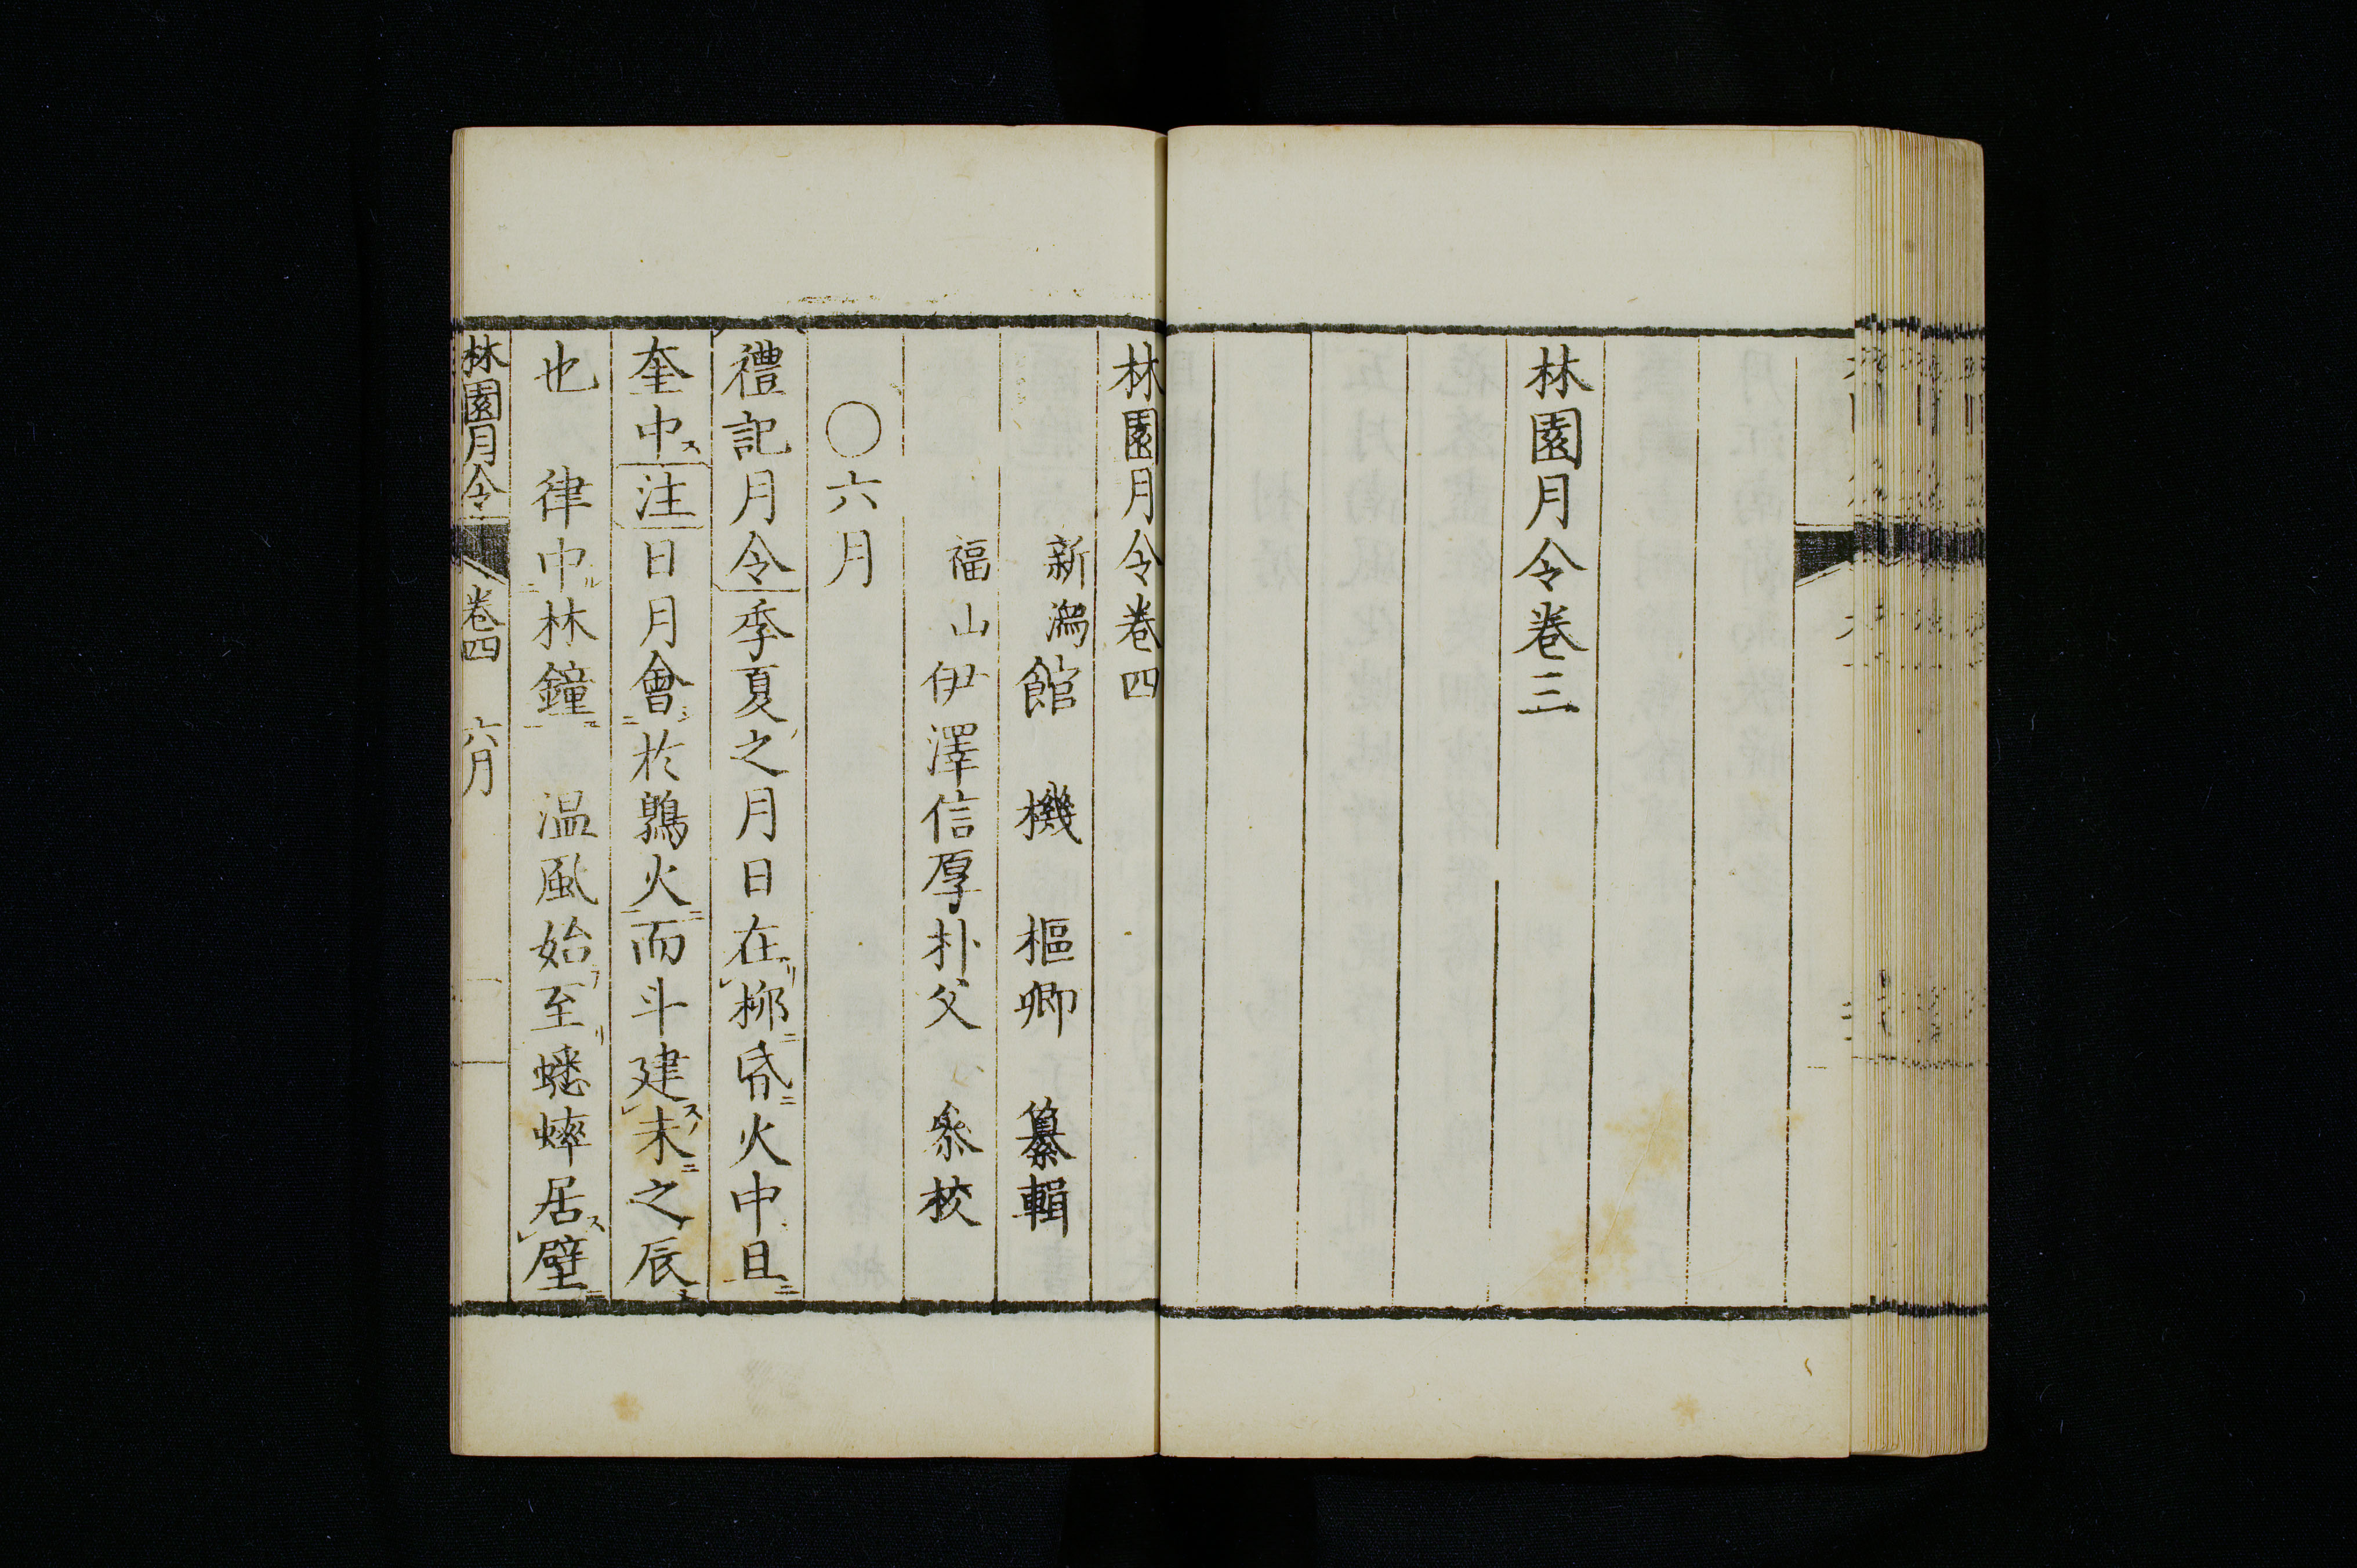 林園月令卷三
林園月令卷四
新潟館　機　樞卿　纂輯
福山伊澤信厚朴父　參校
○六月
禮記月令季夏之月日在柳昏火中旦
奎中注日月會於鶉火而斗建未之辰
也　律中林鐘　温風始至蟋蟀居壁
林園月令　卷四　六月　一